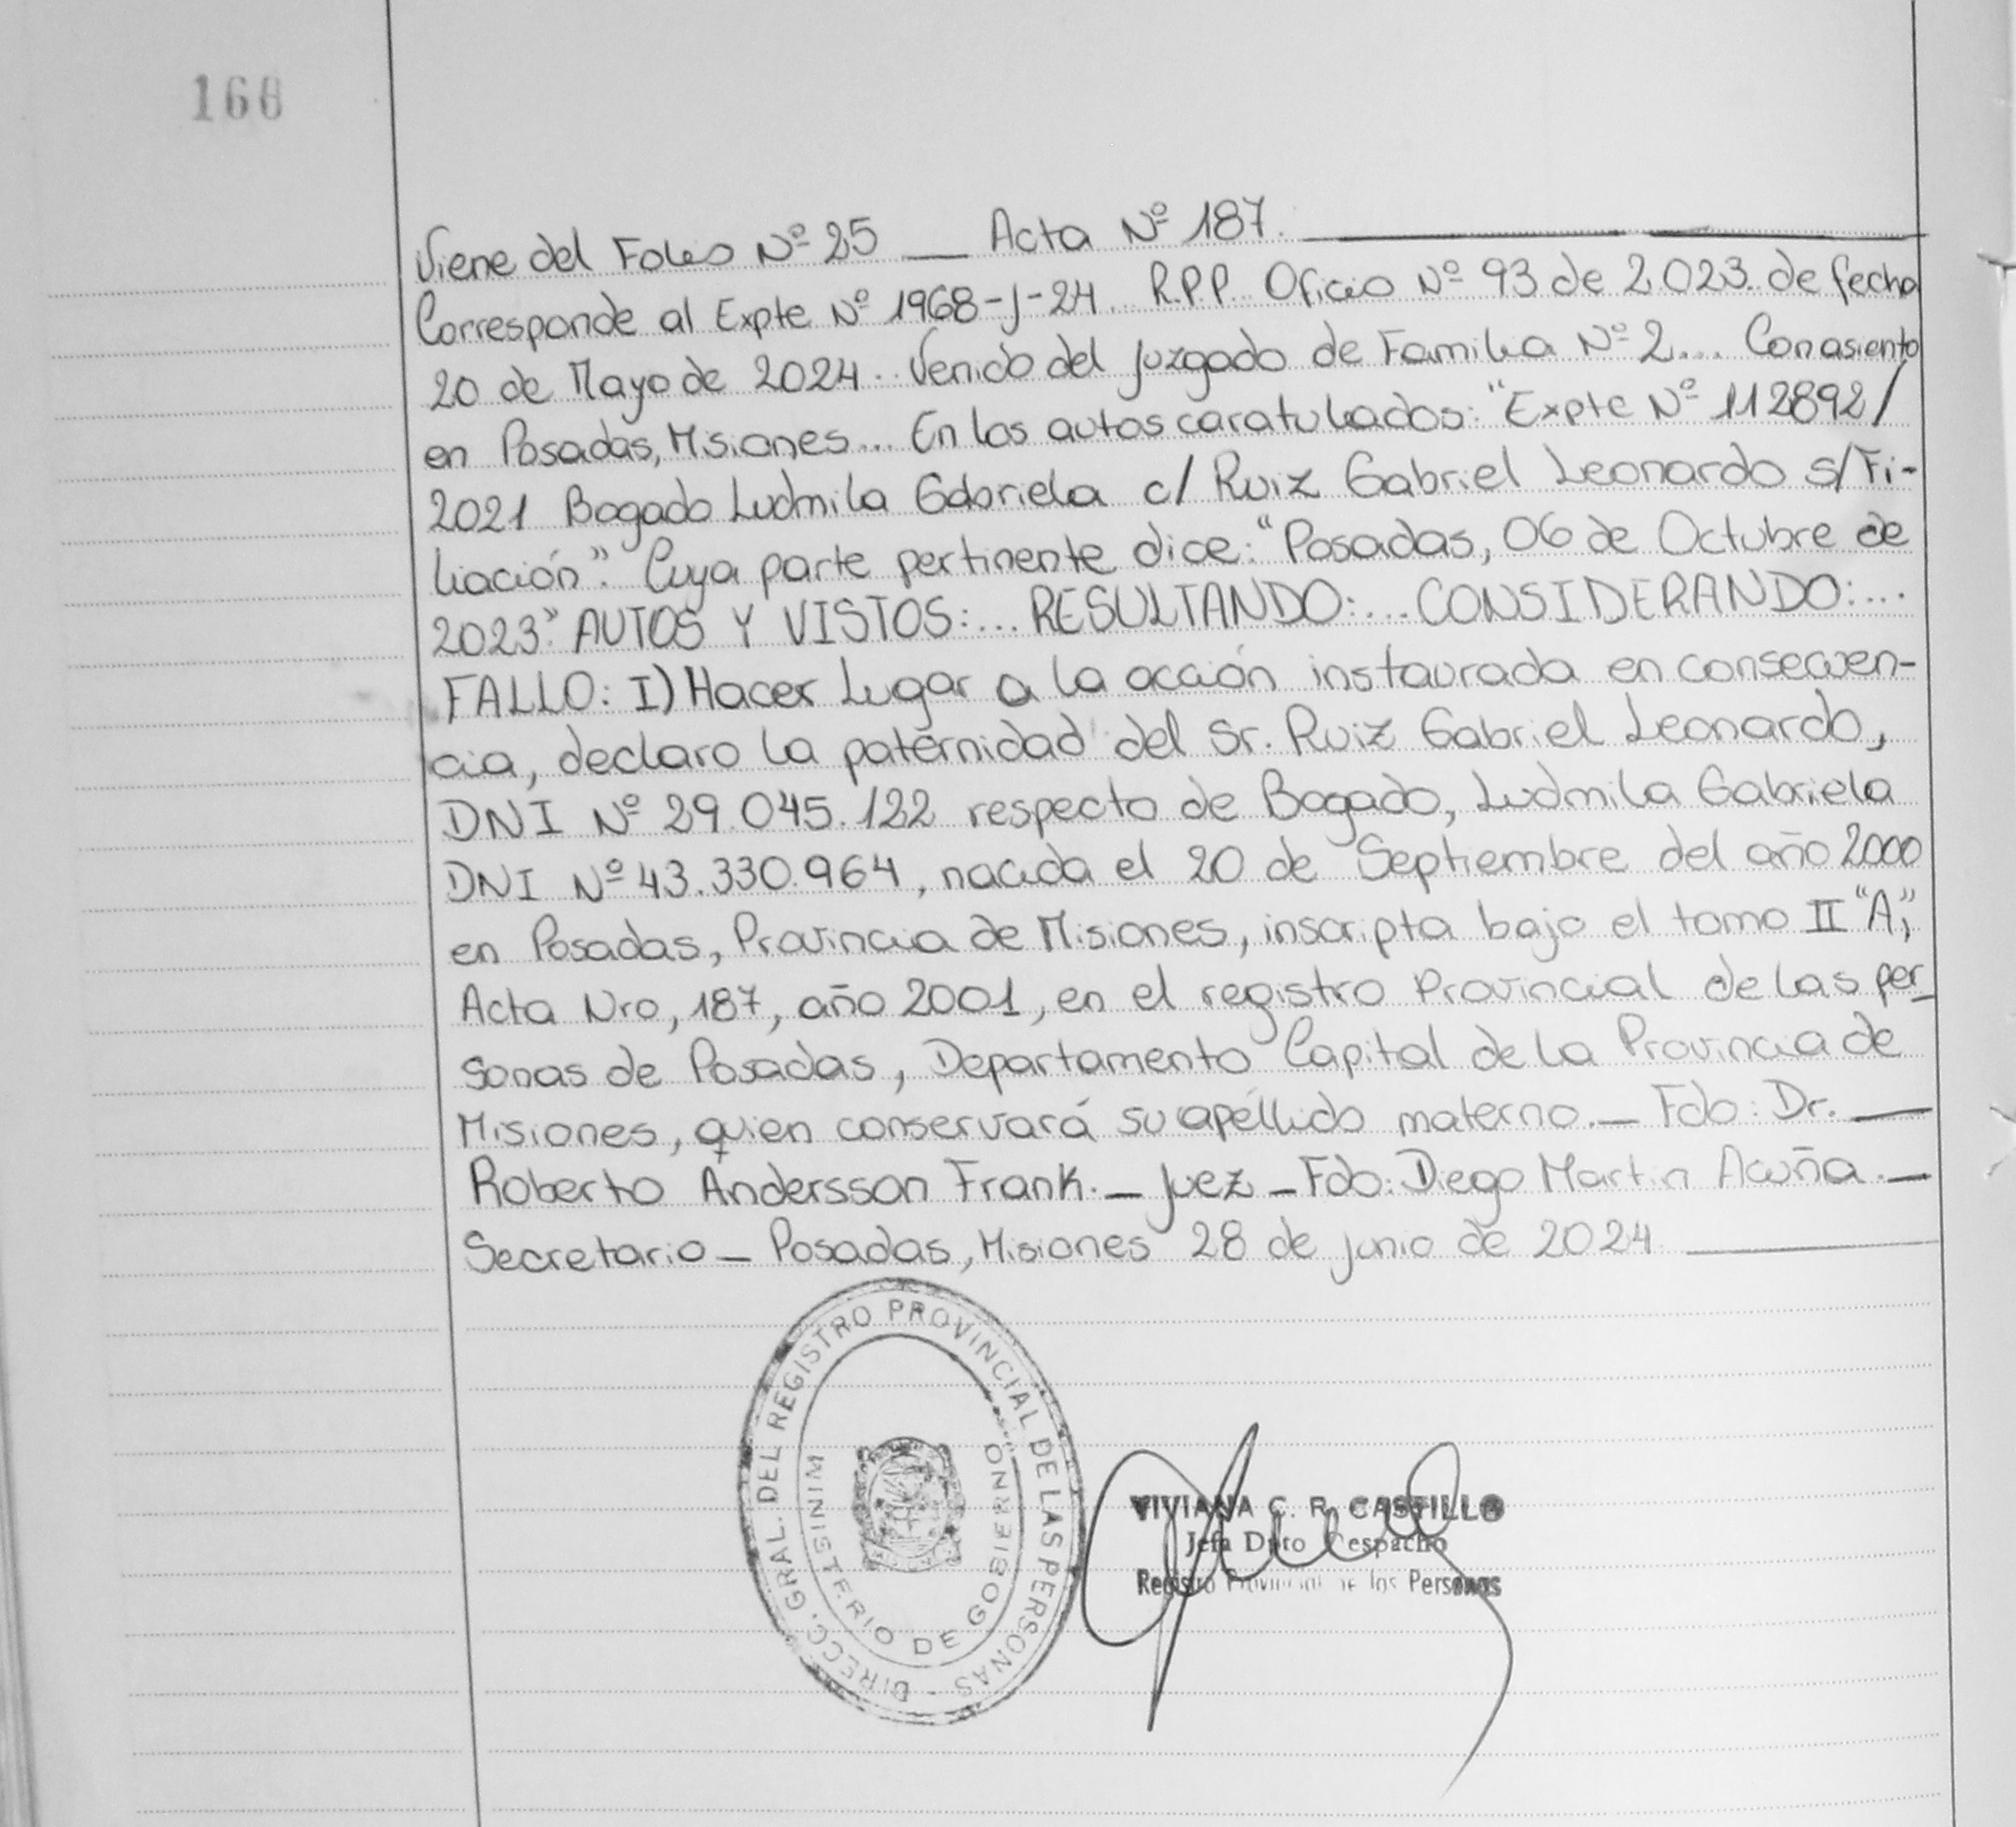 166
Viene del Folio Nº 25 __ Acta Nº 187.
Corresponde al Expte Nº 1968-J-24. R.P.P. Oficio Nº 93 de 2023. de fecha
20 de Mayo de 2024.. Venido del Juzgado de Familia Nº 2... Con asiento
en Posadas, Misiones... En los autos caratulados: "Expte Nº 112892/
2021 Bogado Ludmila Gabriela c/ Ruiz Gabriel Leonardo s/ Fi-
liación". Cuya parte pertinente dice: "Posadas, 06 de Octubre de
2023". AUTOS Y VISTOS:... RESULTANDO:... CONSIDERANDO:...
FALLO: I) Hacer Lugar a la acción instaurada en consecuen-
cia, declaro la paternidad del Sr. Ruiz Gabriel Leonardo,
DNI Nº 29.045.122 respecto de Bogado, Ludmila Gabriela
DNI Nº 43.330.964, nacida el 20 de Septiembre del año 2000
en Posadas, Provincia de Misiones, inscripta bajo el tomo II "A",
Acta Nro, 187, año 2001, en el registro Provincial de las per_
sonas de Posadas, Departamento Capital de la Provincia de
Misiones, quien conservará su apéllido materno._ Fdo: Dr. __
Roberto Andersson Frank._ Juez _ Fdo: Diego Martin Acuña._
Secretario _ Posadas, Misiones 28 de junio de 2024
DIRECC. GRAL. DEL REGISTRO PROVINCIAL DE LAS PERSONAS -
MINISTERIO DE GOBIERNO
VIVIANA C. R. CASTILLO
Jefa Dpto Despacho
Registro Provincial de las Personas